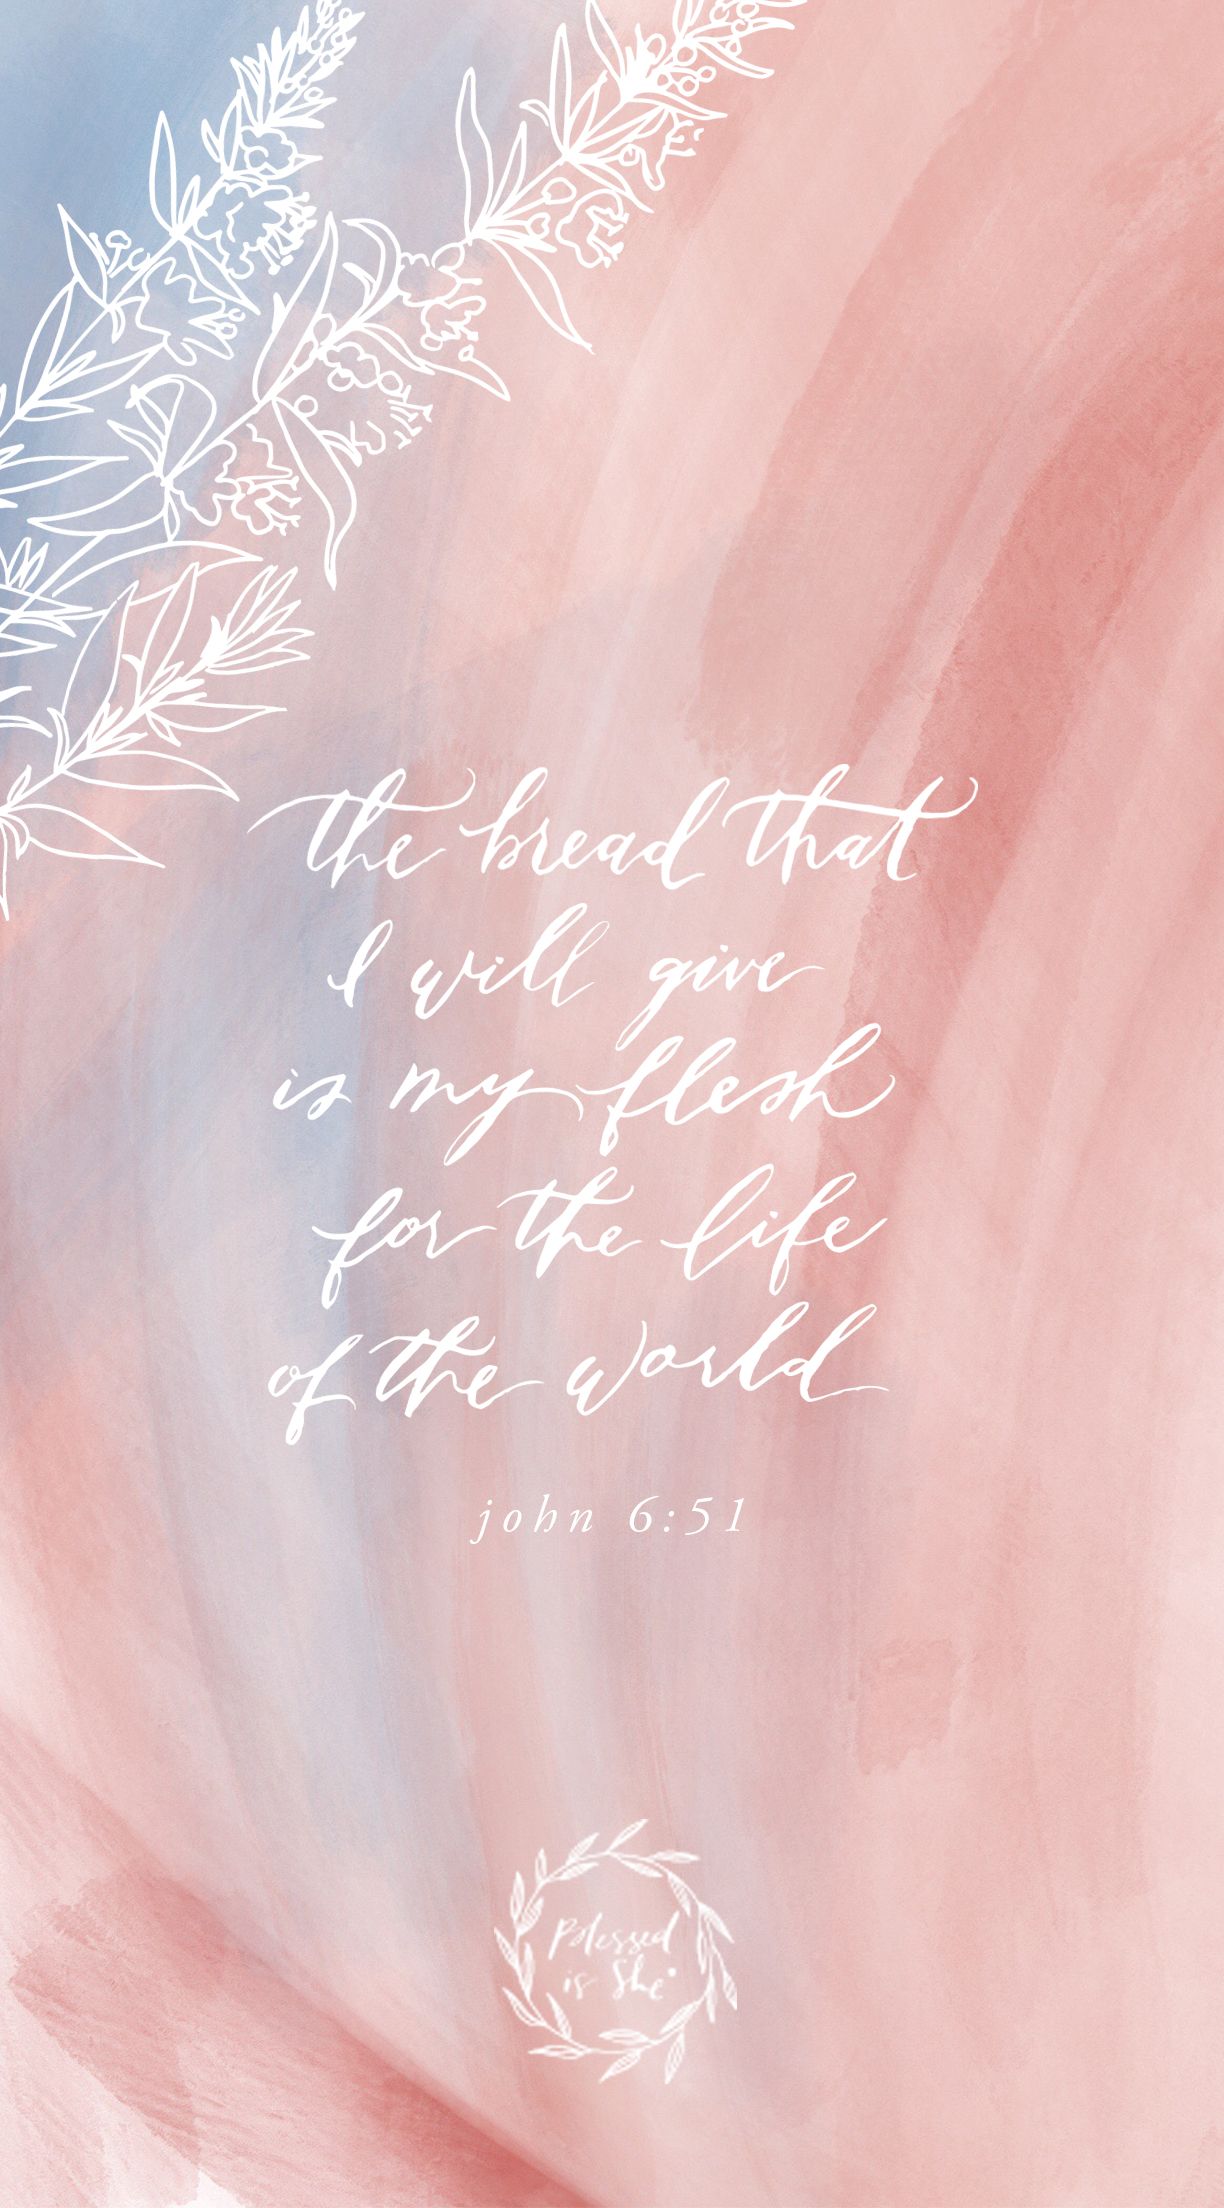 the bread that
I will give
is my flesh
for the life
of the world
john 6:51
Blessed
is She